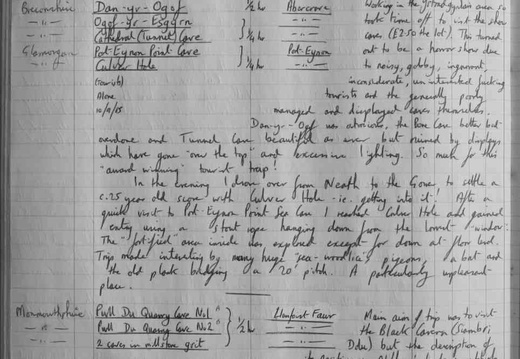 Breconshire Dan-yr-Ogof } ½ hr Abercrave Working in the Ystradgynlais area so
-"- Ogof-yr-Esgyrn -"- took time off to visit the show
-"- Cathedral (Tunnel) Cave -"- cave (£2.50 the lot). This turned
Glamorgan Port-Eynon Point Cave } ¼ hr Port-Eynon out to be a horror show due
-"- Culver Hole -"- to noisy, gobby, ignorant,
(tourist) inconsiderate, uninterested fucking
Alone tourists and the generally poorly
managed and displayed caves themselves.
Dan-yr-Ogof was atrocious, the Bone Cave better but
overdone and Tunnel Cave beautiful as ever but ruined by displays
which have gone "over the top" and excessive lighting. So much for this
"award winning" tourist trap!
In the evening I drove over from Neath to the Gower, to settle a
c.25 year old score with Culver Hole - ie. getting into it! After a
quick visit to Port-Eynon Point Sea Cave I reached Culver Hole and gained
entry using a stout rope hanging down from the lowest window.
The "fortified" area inside was explored except for down at floor level.
Trip made interesting by many huge sea-woodlice, pigeons, a bat and
the old plank bridging a 20' pitch. A particularly unpleasant
place.
Monmouthshire Pwll Du Quarry Cave No.1 } ½ hr Llanfoist Fawr Main aim of trip was to visit
-"- Pwll Du Quarry Cave No2 -"- the Black Cavern (Siambri
-"- 2 caves in millstone grit -"- Ddu) but the description of